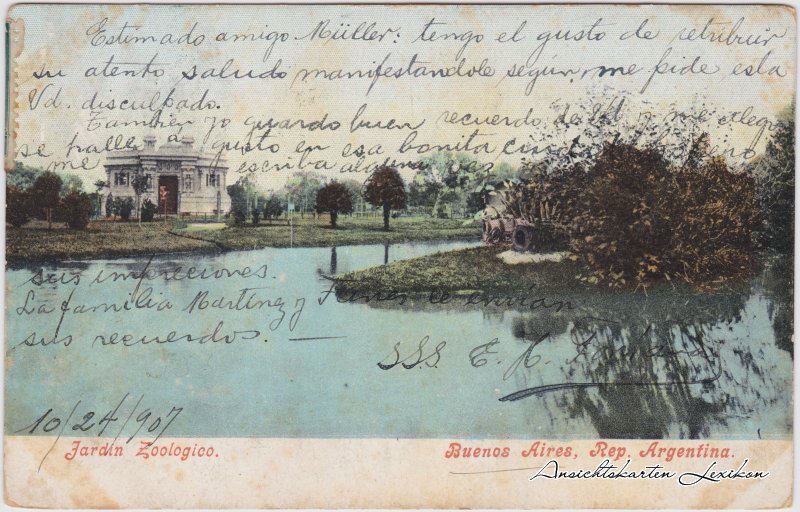 Estimado amigo Müller: tengo el gusto de retribuir
su atento saludo manifestandole según, me pide esta
Vd. disculpado.
Tambien yo guardo buen recuerdo, de Vd. y me alegro
se halle a gusto en esa bonita
me escriba alguna
sus impreciones.
La familia Martinez y le envían
sus recuerdos. —
SSS. E. K.
10/24/907
Jardín Zoologico.
Buenos Aires, Rep. Argentina.
Ansichtskarten Lexikon